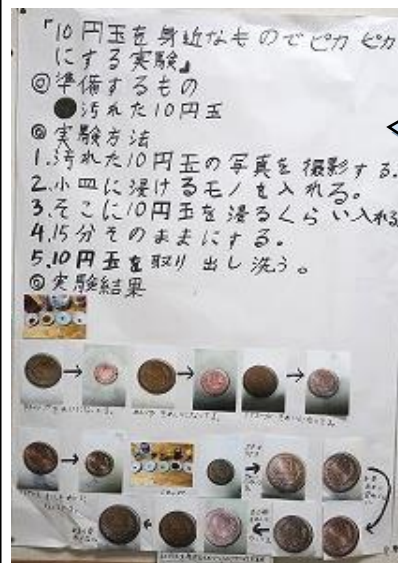 『10円玉を身近なものでピカピカ
にする実験』
◎準備するもの
●汚れた10円玉
◎実験方法
1.汚れた10円玉の写真を撮影する。
2.小皿に浸けるモノを入れる。
3.そこに10円玉を浸るくらい入れる
4.15分そのままにする。
5.10円玉を取り出し洗う。
◎実験結果